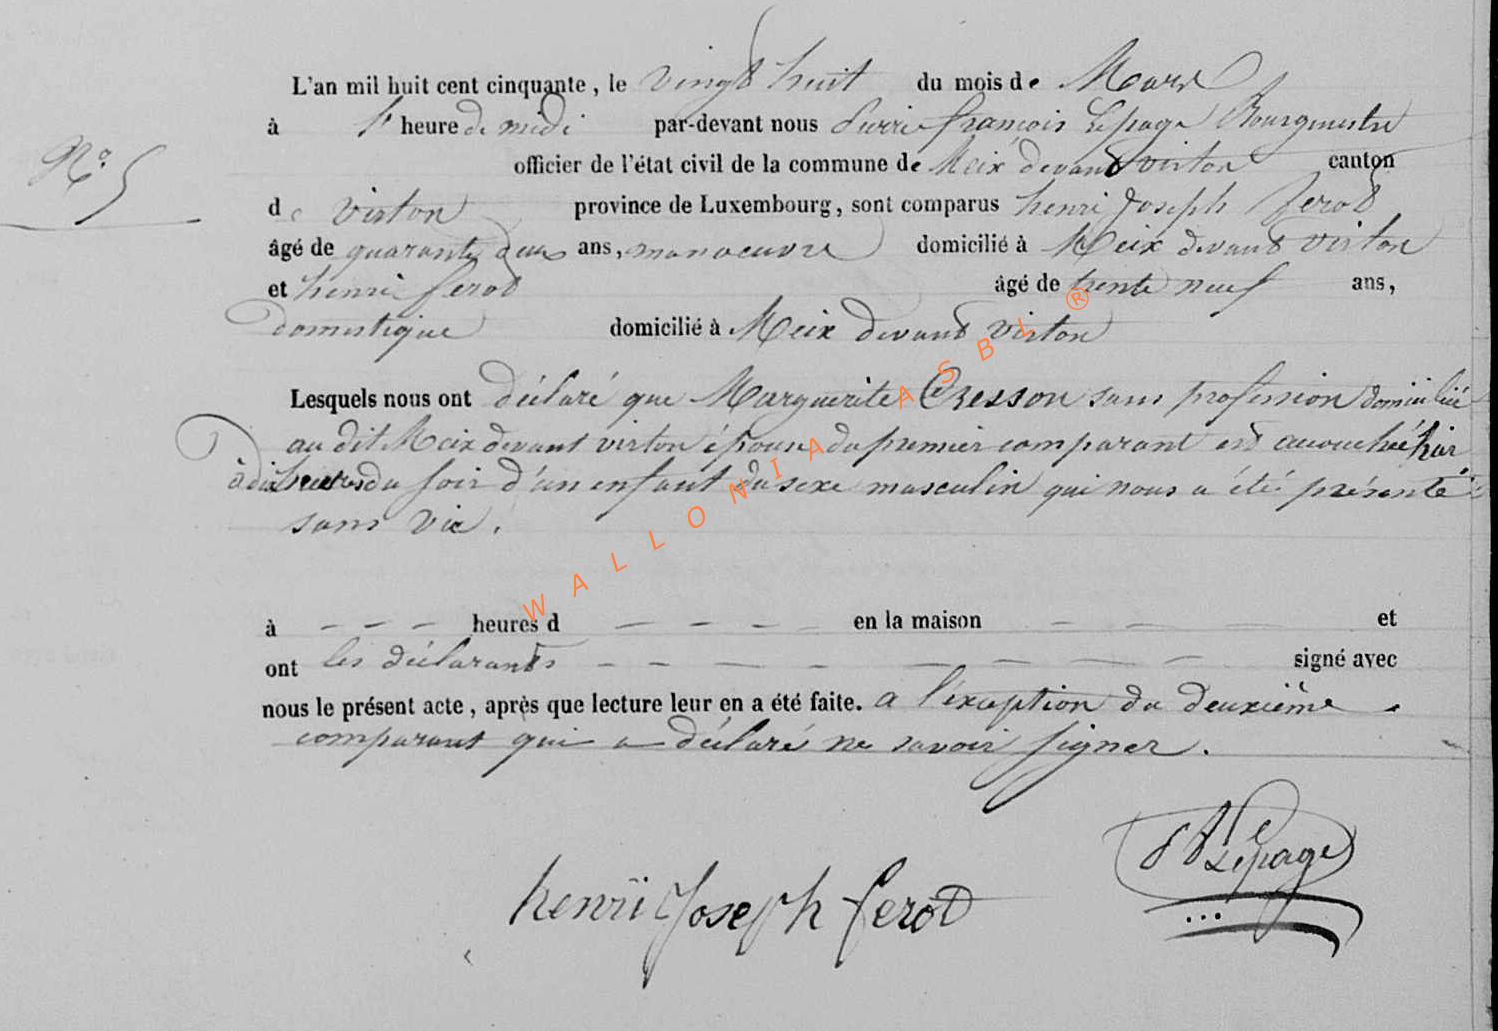 L'an mil huit cent cinquante, le vingt huit du mois de Mars
à 1 heure de midi par-devant nous Pierre françois Lepage Bourgmestre
N.° 5
officier de l'état civil de la commune de Meix devant virton canton
de virton province de Luxembourg, sont comparus henri Joseph ferot
âgé de quarante deux ans, manoeuvre domicilié à Meix devant virton
et henri ferot âgé de trente neuf ans,
domestique domicilié à Meix devant virton
Lesquels nous ont déclaré que Marguerite Cresson sans profession domiciliée
au dit Meix devant virton épouse du premier comparant est accouchée hier
à dix heures du soir d'un enfant du sexe masculin qui nous a été présenté
sans vie.
à heures d en la maison et
ont les déclarants signé avec
nous le présent acte, après que lecture leur en a été faite. a l'éxception du deuxième
comparant qui a déclaré ne savoir signer.
Lepage
henri Joseph ferot
WALLONIA ASBL ®